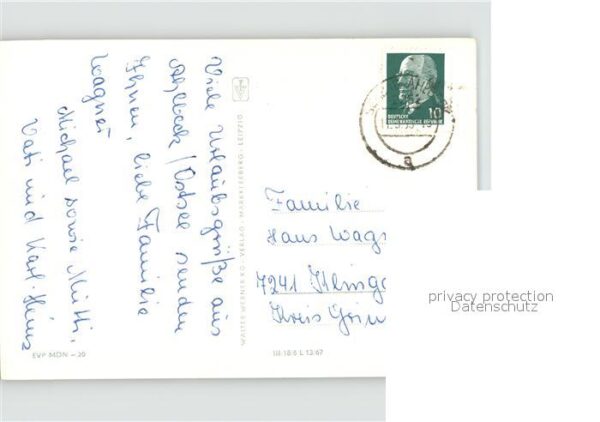 Viele Urlaubsgrüße aus
Ahlbeck/Ostsee senden
Ihnen, liebe Familie
Wagner
Michael sowie Mutti,
Vati und Karl-Heinz
EVP MDN –.20
WALTER WERNER KG · VERLAG · MARKKLEEBERG - LEIPZIG
III 18 6 L 13/67
DEUTSCHE
DEMOKRATISCHE REPUBLIK
10
a
Familie
Hans Wag
7241 Kling
Kreis Grim
privacy protection
Datenschutz